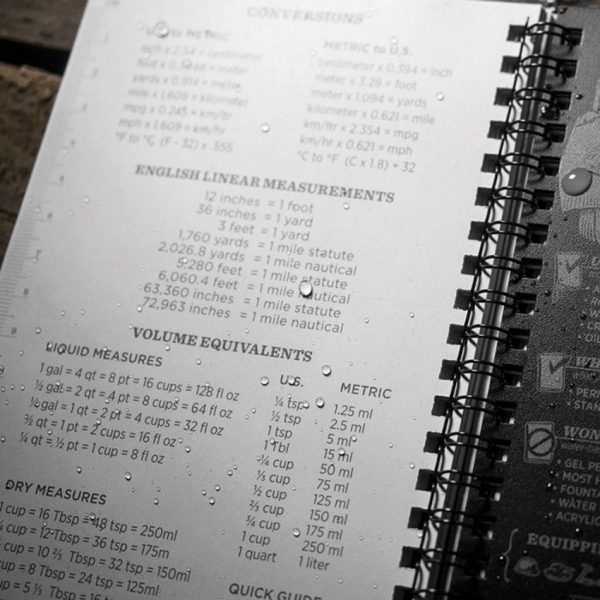 CONVERSIONS
to METRIC
inch x 2.54 = centimeter
foot x 0.3048 = meter
yards x 0.914 = meter
mile x 1.609 = kilometer
mpg x 0.245 = km/ltr
mph x 1.609 = km/hr
°F to °C (F - 32) x .555
METRIC to U.S.
centimeter x 0.394 = inch
meter x 3.28 = foot
meter x 1.094 = yards
kilometer x 0.621 = mile
km/ltr x 2.354 = mpg
km/hr x 0.621 = mph
°C to °F (C x 1.8) + 32
ENGLISH LINEAR MEASUREMENTS
12 inches = 1 foot
36 inches = 1 yard
3 feet = 1 yard
1,760 yards = 1 mile statute
2,026.8 yards = 1 mile nautical
5,280 feet = 1 mile statute
6,060.4 feet = 1 mile nautical
63,360 inches = 1 mile statute
72,963 inches = 1 mile nautical
VOLUME EQUIVALENTS
LIQUID MEASURES
1 gal = 4 qt = 8 pt = 16 cups = 128 fl oz
½ gal = 2 qt = 4 pt = 8 cups = 64 fl oz
¼ gal = 1 qt = 2 pt = 4 cups = 32 fl oz
½ qt = 1 pt = 2 cups = 16 fl oz
¼ qt = ½ pt = 1 cup = 8 fl oz
U.S. METRIC
¼ tsp 1.25 ml
½ tsp 2.5 ml
1 tsp 5 ml
1 Tbl 15 ml
¼ cup 50 ml
⅓ cup 75 ml
½ cup 125 ml
⅔ cup 150 ml
¾ cup 175 ml
1 cup 250 ml
1 quart 1 liter
DRY MEASURES
1 cup = 16 Tbsp = 48 tsp = 250ml
cup = 12 Tbsp = 36 tsp = 175m
cup = 10 ⅔ Tbsp = 32 tsp = 150ml
cup = 8 Tbsp = 24 tsp = 125ml
cup = 5 ⅓ Tbsp = 16 tsp
QUICK GUIDE
WON
GEL PE
MOST H
FOUNTA
WATER
ACRYLIC
EQUIPPI